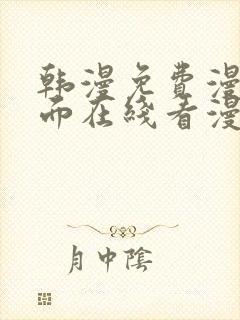 韩漫免费漫
面在线看漫
月中阴